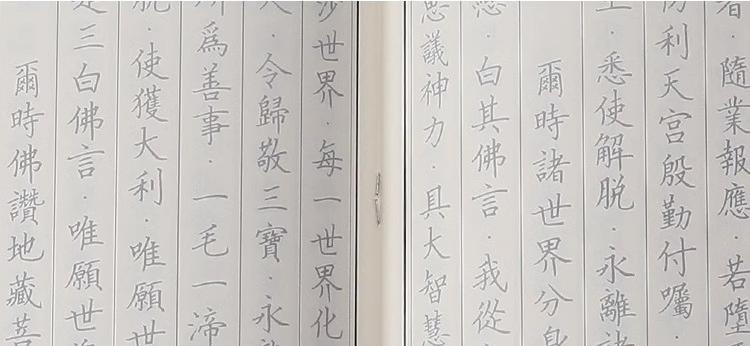 者．隨業報應．若墮
利天宮殷勤付囑．
．悉使解脫．永離諸
爾時諸世界分身
．白其佛言．我從
思議神力．具大智慧
沙世界．每一世界化
人．令歸敬三寶．永
所爲善事．一毛一渧
脫．使獲大利．唯願世
是三白佛言．唯願世
爾時佛讚地藏菩